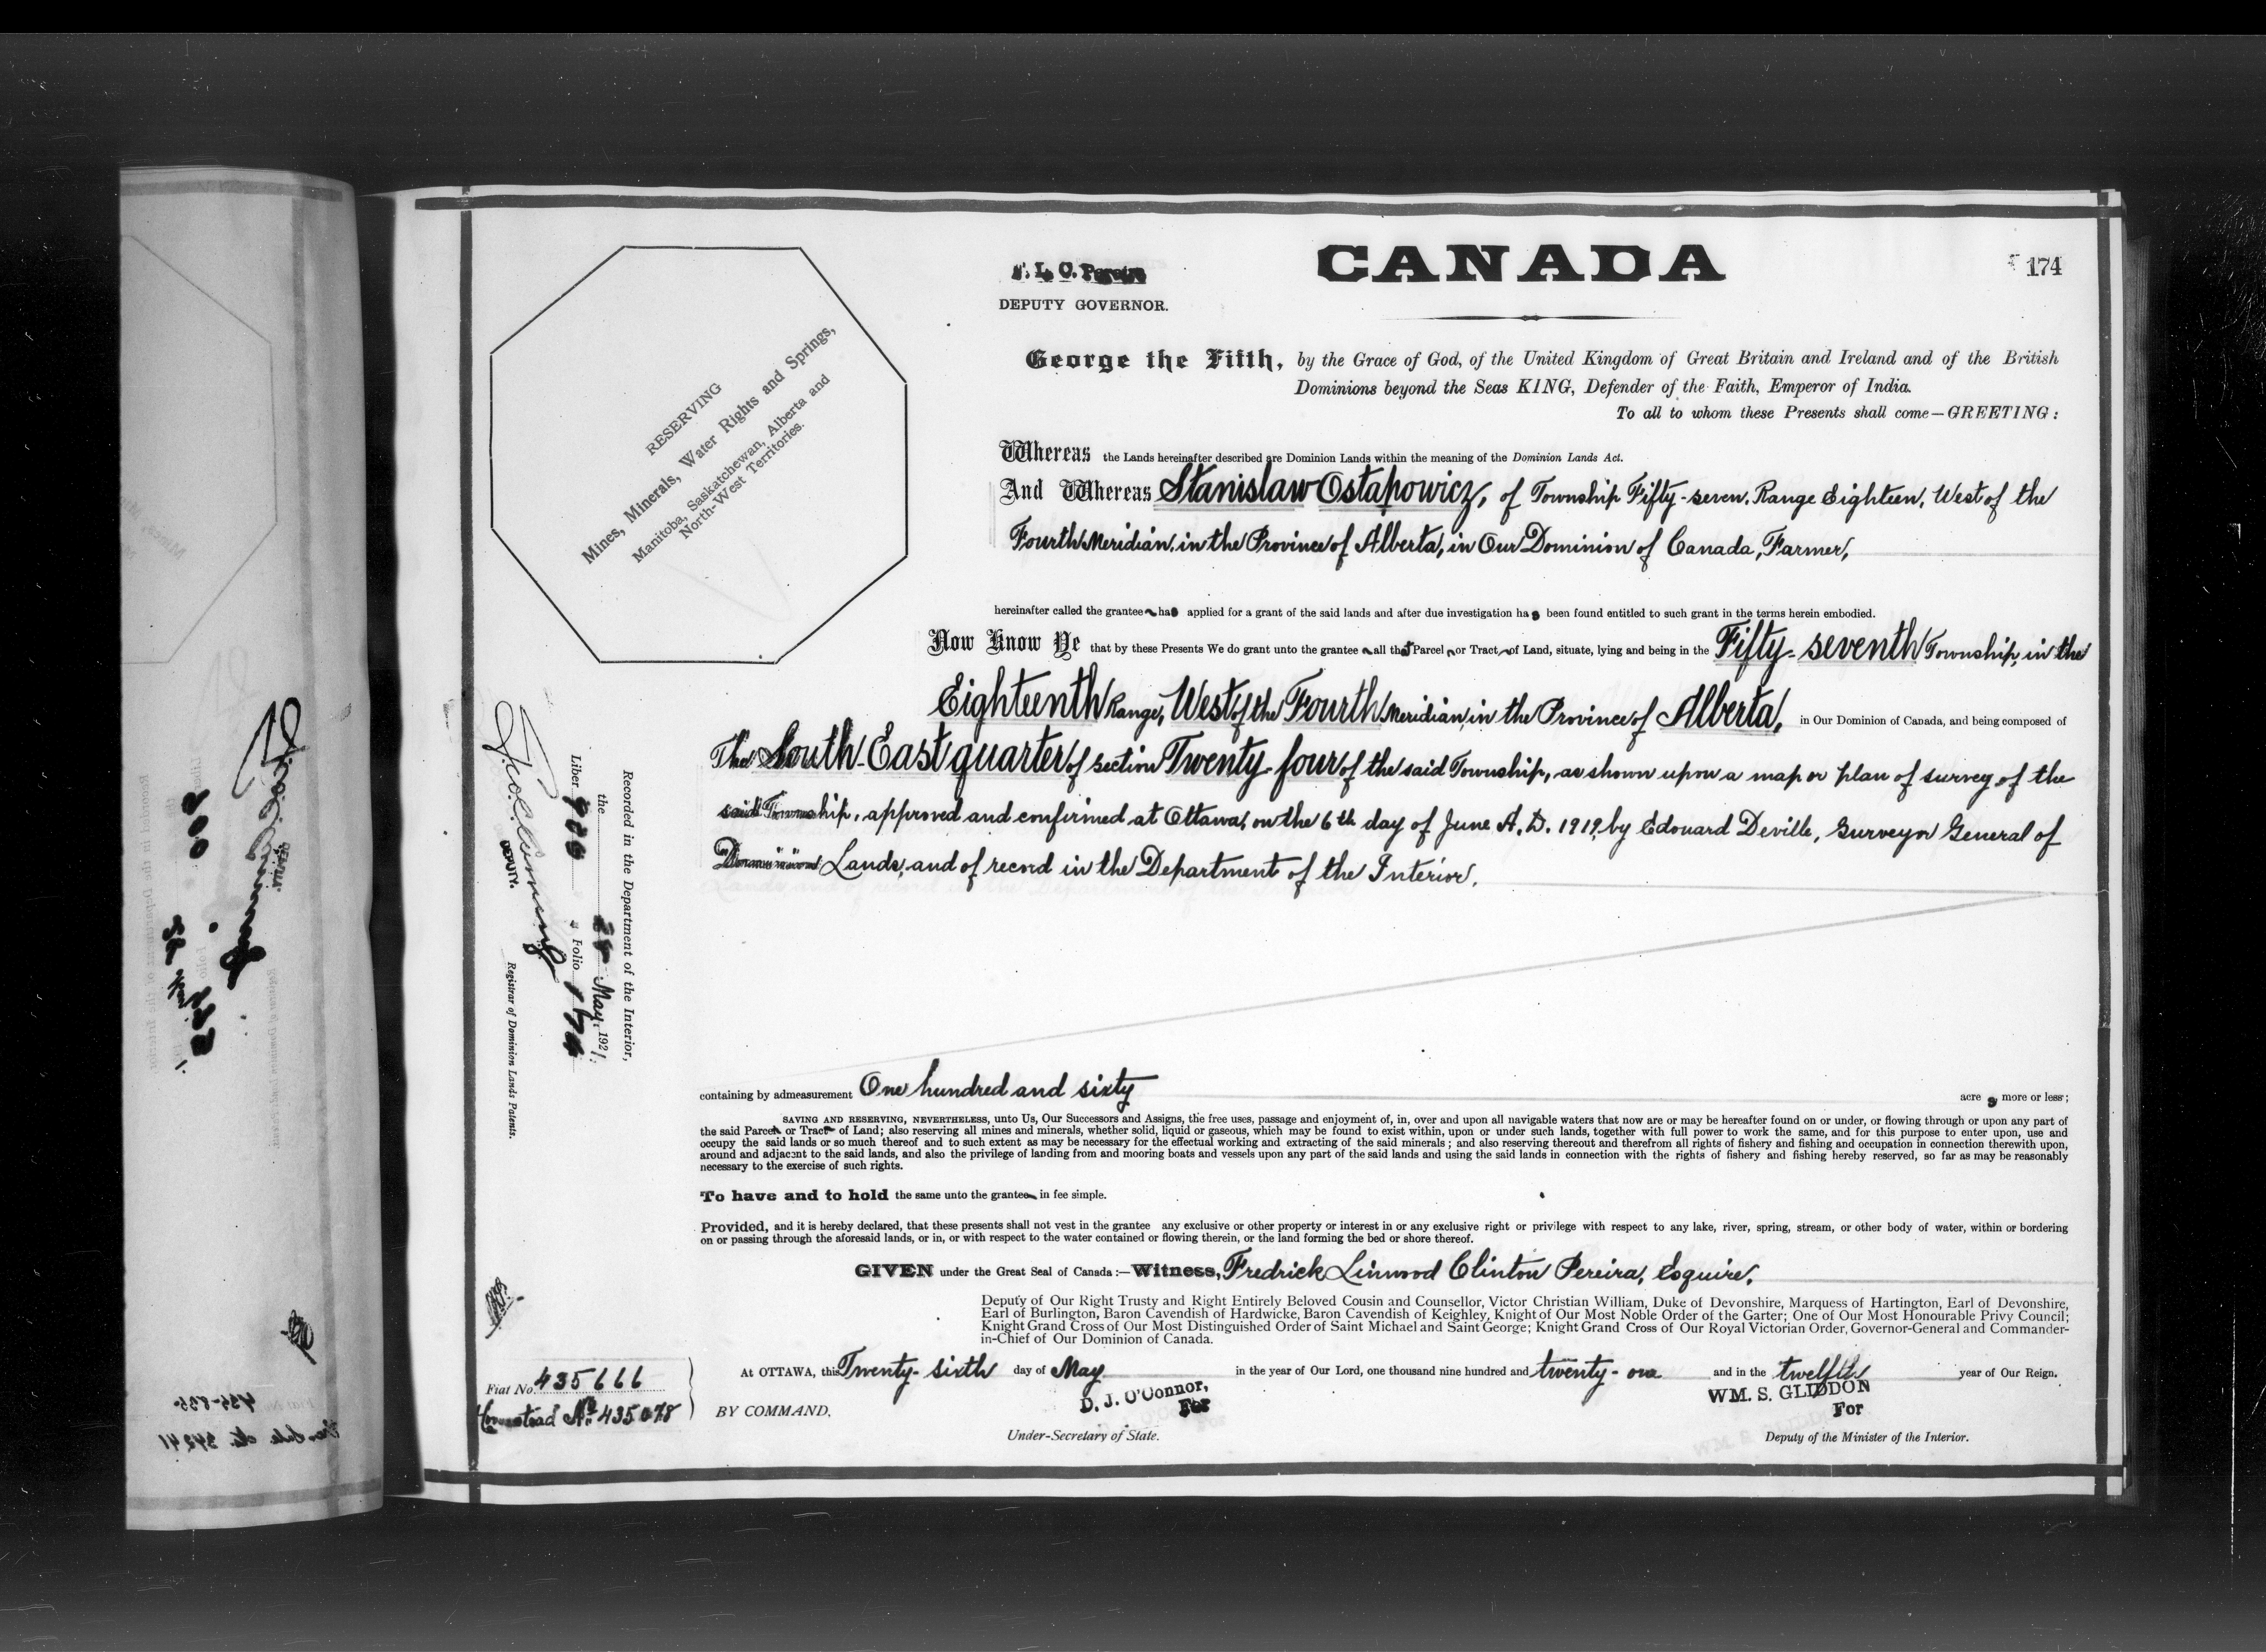 CANADA
174
F. L. C. Pereira
DEPUTY GOVERNOR.
George the Fifth, by the Grace of God, of the United Kingdom of Great Britain and Ireland and of the British
Dominions beyond the Seas KING, Defender of the Faith, Emperor of India.
To all to whom these Presents shall come—GREETING:
RESERVING
Mines, Minerals, Water Rights and Springs,
Manitoba, Saskatchewan, Alberta and
North-West Territories.
Whereas the Lands hereinafter described are Dominion Lands within the meaning of the Dominion Lands Act.
And Whereas Stanislaw Ostapowicz, of Township Fifty-seven, Range Eighteen, West of the
Fourth Meridian, in the Province of Alberta, in Our Dominion of Canada, Farmer,
hereinafter called the grantee has applied for a grant of the said lands and after due investigation has been found entitled to such grant in the terms herein embodied.
Now Know Ye that by these Presents We do grant unto the grantee all that Parcel or Tract of Land, situate, lying and being in the Fifty-seventh Township, in the
Eighteenth Range, West of the Fourth Meridian, in the Province of Alberta, in Our Dominion of Canada, and being composed of
The South-East quarter of section Twenty-four of the said Township, as shown upon a map or plan of survey of the
said Township, approved and confirmed at Ottawa, on the 6th day of June A.D. 1919, by Edouard Deville, Surveyor General of
Dominion Lands, and of record in the Department of the Interior.
containing by admeasurement One hundred and sixty acres more or less;
SAVING AND RESERVING, NEVERTHELESS, unto Us, Our Successors and Assigns, the free uses, passage and enjoyment of, in, over and upon all navigable waters that now are or may be hereafter found on or under, or flowing through or upon any part of
the said Parcel or Tract of Land; also reserving all mines and minerals, whether solid, liquid or gaseous, which may be found to exist within, upon or under such lands, together with full power to work the same, and for this purpose to enter upon, use and
occupy the said lands or so much thereof and to such extent as may be necessary for the effectual working and extracting of the said minerals; and also reserving thereout and therefrom all rights of fishery and fishing and occupation in connection therewith upon,
around and adjacent to the said lands, and also the privilege of landing from and mooring boats and vessels upon any part of the said lands and using the said lands in connection with the rights of fishery and fishing hereby reserved, so far as may be reasonably
necessary to the exercise of such rights.
To have and to hold the same unto the grantee in fee simple.
Provided, and it is hereby declared, that these presents shall not vest in the grantee any exclusive or other property or interest in or any exclusive right or privilege with respect to any lake, river, spring, stream, or other body of water, within or bordering
on or passing through the aforesaid lands, or in, or with respect to the water contained or flowing therein, or the land forming the bed or shore thereof.
GIVEN under the Great Seal of Canada:—Witness, Fredrick Linwood Clinton Pereira, Esquire,
Deputy of Our Right Trusty and Right Entirely Beloved Cousin and Counsellor, Victor Christian William, Duke of Devonshire, Marquess of Hartington, Earl of Devonshire,
Earl of Burlington, Baron Cavendish of Hardwicke, Baron Cavendish of Keighley, Knight of Our Most Noble Order of the Garter; One of Our Most Honourable Privy Council;
Knight Grand Cross of Our Most Distinguished Order of Saint Michael and Saint George; Knight Grand Cross of Our Royal Victorian Order, Governor-General and Commander-
in-Chief of Our Dominion of Canada.
At OTTAWA, this Twenty-sixth day of May in the year of Our Lord, one thousand nine hundred and twenty-one and in the twelfth year of Our Reign.
BY COMMAND,
D. J. O'Connor,
For
Under-Secretary of State.
WM. S. GLIDDON
For
Deputy of the Minister of the Interior.
Recorded in the Department of the Interior,
the May, 1921.
Liber Folio 174
DEPUTY.
Registrar of Dominion Lands Patents.
Fiat No. 435666
Homestead No. 435078